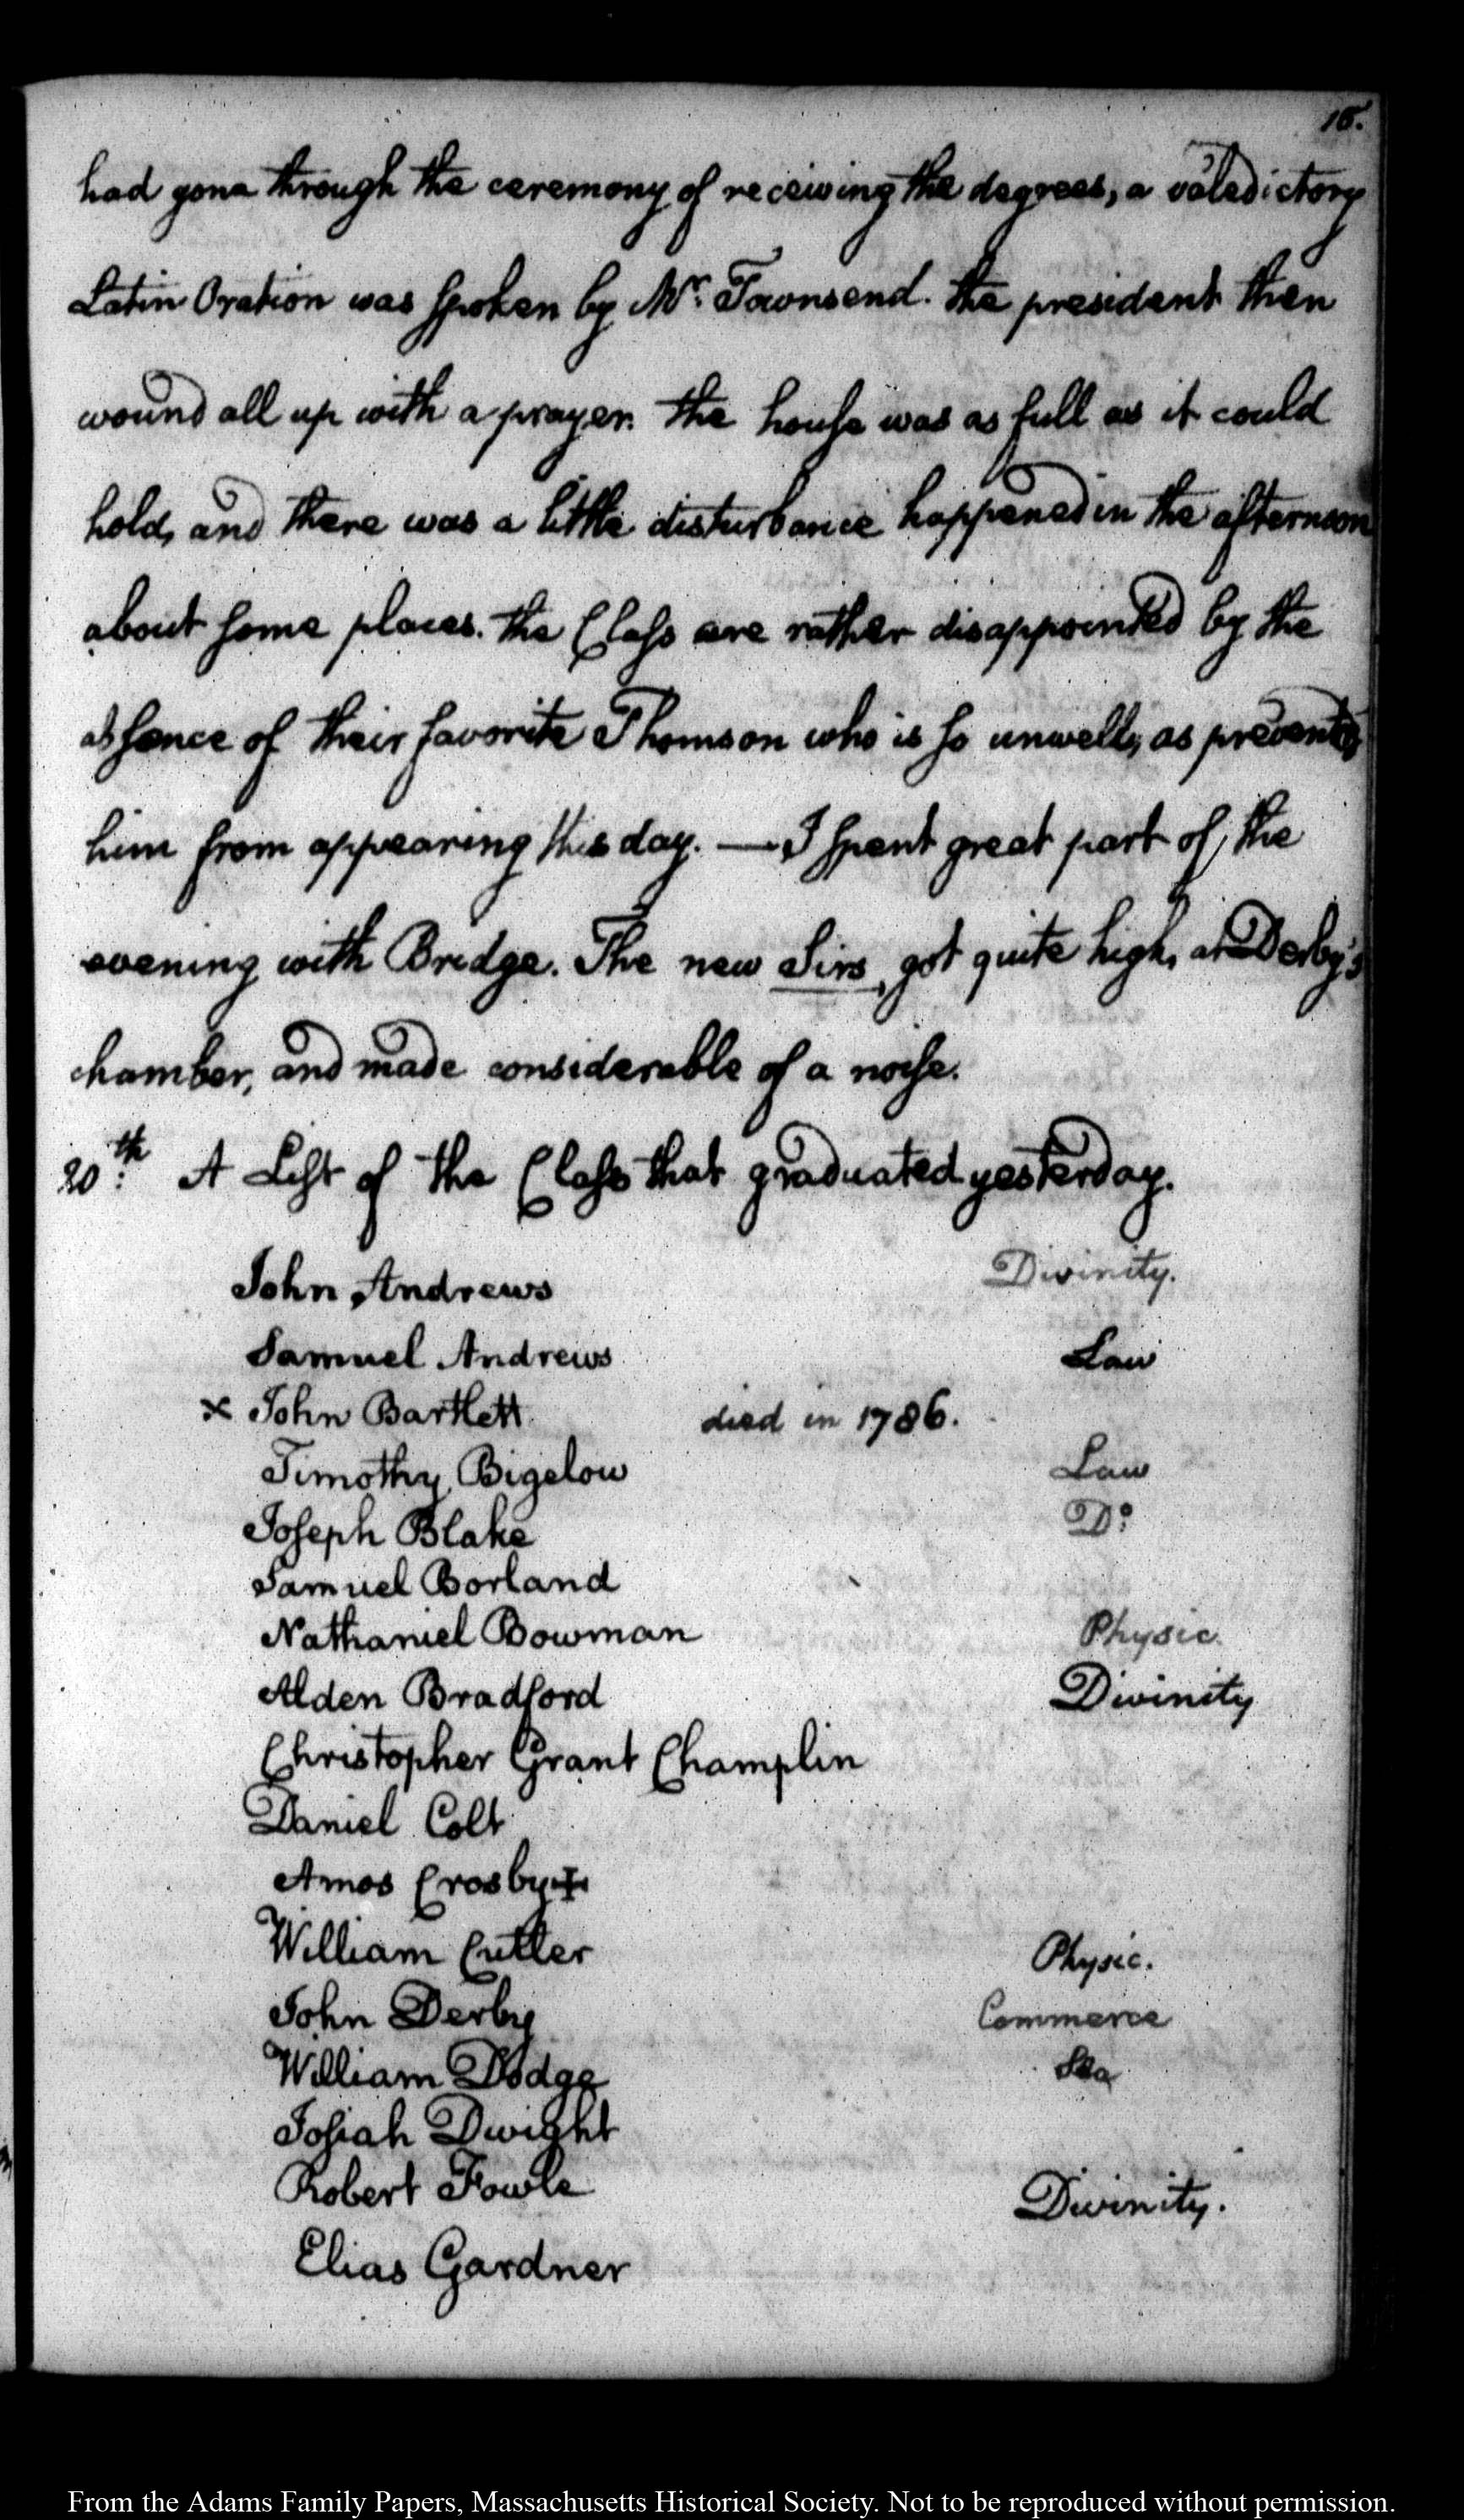 15.
had gone through the ceremony of receiving the degrees, a valedictory
Latin Oration was spoken by Mr. Townsend. The president then
wound all up with a prayer. the house was as full as it could
hold, and there was a little disturbance happened in the afternoon
about some places. the Class are rather disappointed by the
absence of their favorite Thomson who is so unwell, as prevents
him from appearing this day. — I spent great part of the
evening with Bridge. The new Sirs, got quite high, at Derby's
chamber, and made considerable of a noise.
20th: A List of the Class that graduated yesterday.
John Andrews Divinity.
Samuel Andrews Law
x John Bartlett died in 1786.
Timothy Bigelow Law
Joseph Blake Do
Samuel Borland
Nathaniel Bowman Physic.
Alden Bradford Divinity
Christopher Grant Champlin
Daniel Colt
Amos Crosby
William Cutler Physic.
John Derby Commerce
William Dodge Sea
Josiah Dwight
Robert Fowle Divinity.
Elias Gardner
From the Adams Family Papers, Massachusetts Historical Society. Not to be reproduced without permission.